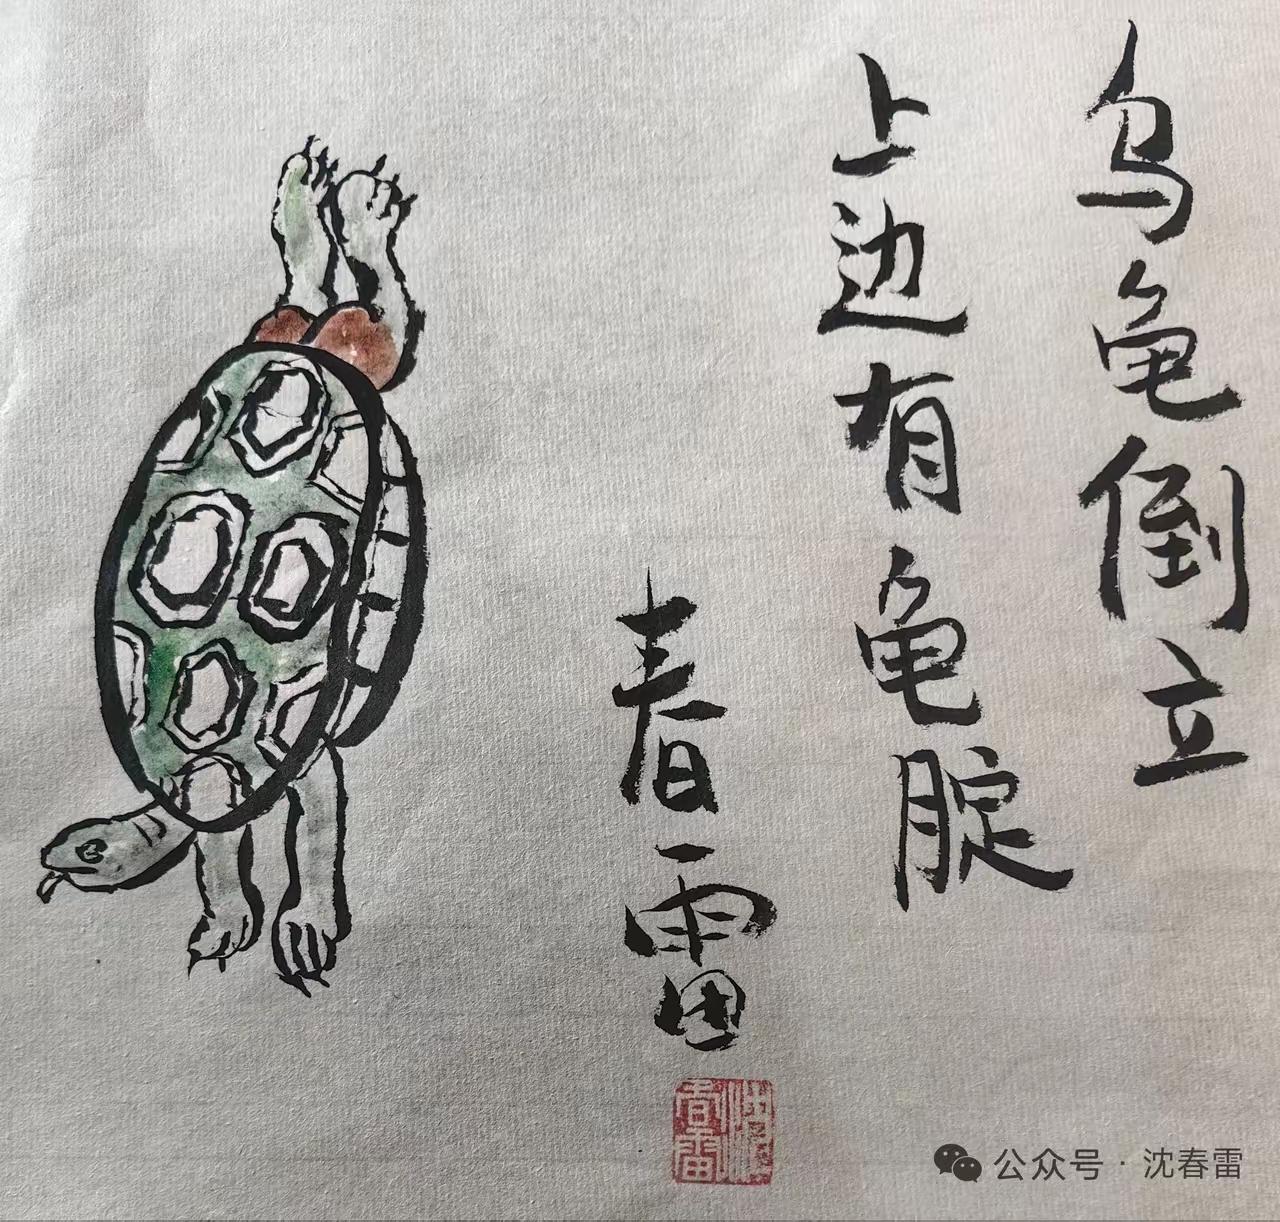 乌龟倒立
上边有龟腚
春雷
公众号·沈春雷